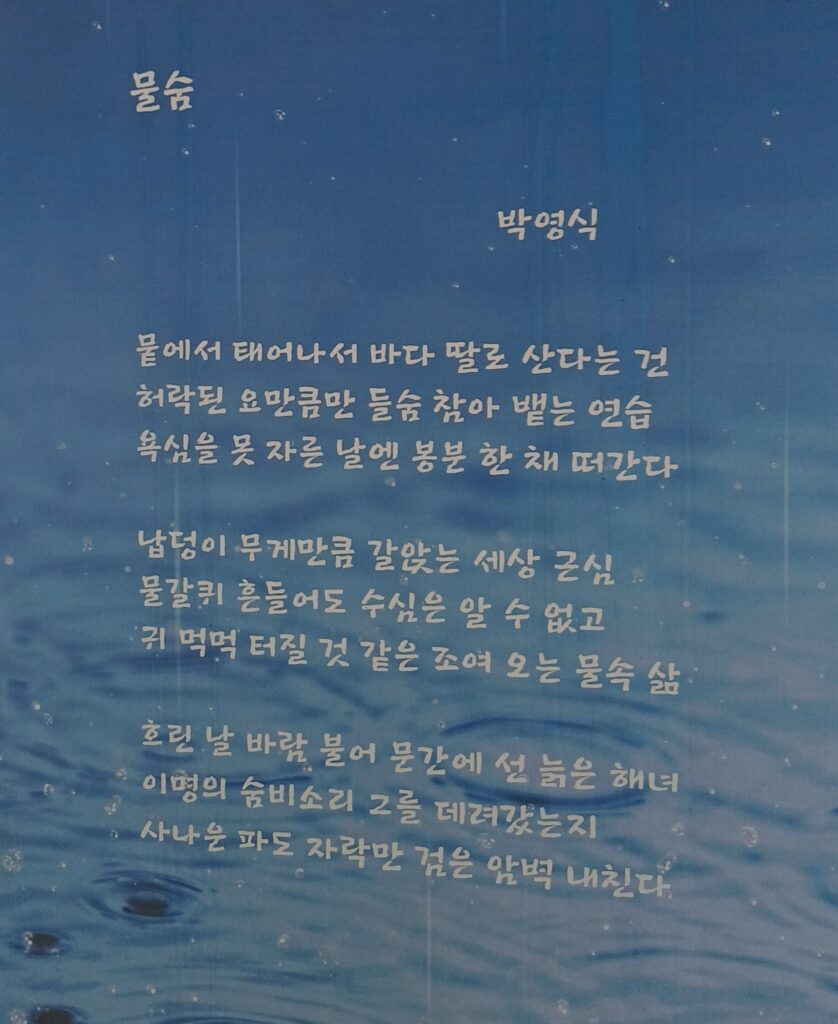 물숨
박영식
뭍에서 태어나서 바다 딸로 산다는 건
허락된 요만큼만 들숨 참아 뱉는 연습
욕심을 못 자른 날엔 봉분 한 채 떠간다
납덩이 무게만큼 갈앉는 세상 근심
물갈퀴 흔들어도 수심은 알 수 없고
귀 먹먹 터질 것 같은 조여 오는 물속 삶
흐린 날 바람 불어 문간에 선 늙은 해녀
이명의 숨비소리 그를 데려갔는지
사나운 파도 자락만 검은 암벽 내친다